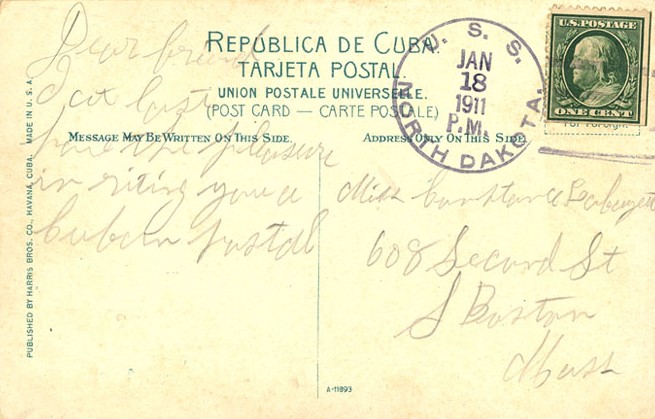 REPÚBLICA DE CUBA.
TARJETA POSTAL.
UNION POSTALE UNIVERSELLE.
(POST CARD — CARTE POSTALE)
MESSAGE MAY BE WRITTEN ON THIS SIDE.
ADDRESS ONLY ON THIS SIDE
U. S. S.
JAN
18
1911
P.M.
NORTH DAKOTA.
U.S. POSTAGE
ONE CENT
Dear friend
I at last
have the pleasure
in riting you a
Cuban postal
Miss Constance
608 Second St
S Boston
Mass
PUBLISHED BY HARRIS BROS. CO., HAVANA, CUBA. MADE IN U. S. A.
A-11893